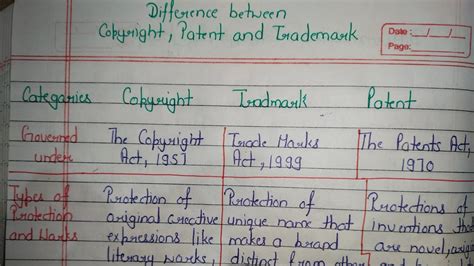 Difference between
Copyright, Patent and Trademark
Date: __/__/__
Page:
Categories Copyright Tradmark Patent
Governed The Copyright Trade Marks The Patents Act,
under Act, 1957 Act, 1999 1970
Types of Protection of Protection of Protections of
Protection original creective unique name that inventions that
and Works expressions like makes a brand are novel,
literary works, distinct from others and